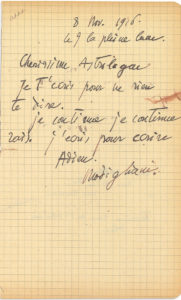 8 Nov. 1916
le 9 la pleine lune.
Carissime
Je t'écris pour ne rien
te dire.
je continue je continue
j'écris pour écrire
Adieu.
Modigliani.